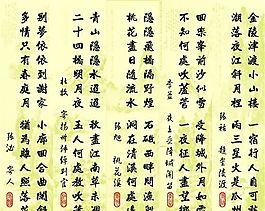 金陵津渡小山楼一宿行人自可愁
潮落夜江斜月里两三星火是瓜州
张祜 题金陵渡
回乐峰前沙似雪受降城外月如霜
不知何处吹芦管一夜征人尽望乡
李益 夜上受降城闻笛
隐隐飞桥隔野烟石矶西畔问渔船
桃花尽日随流水洞在清溪何处边
张旭 桃花溪
青山隐隐水迢迢秋尽江南草未凋
二十四桥明月夜玉人何处教吹箫
杜牧 寄扬州韩绰判官
别梦依依到谢家小廊回合曲阑斜
多情只有春庭月犹为离人照落花
张泌 寄人